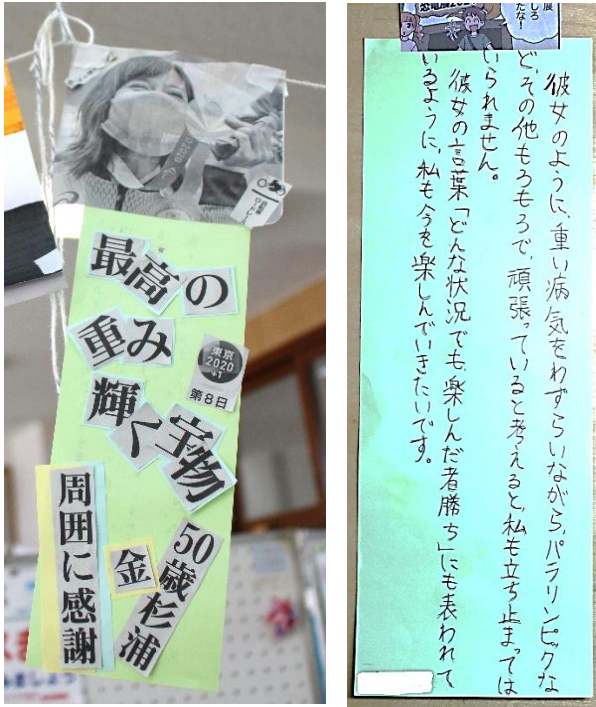 2020
最高の
重み
輝く宝物
東京
2020
+1
第8日
50歳杉浦
金
周囲に感謝
ましょう
彼女のように、重い病気をわずらいながら、パラリンピックな
ど、その他もろもろで、頑張っていると考えると、私も立ち止まっては
いられません。
彼女の言葉「どんな状況でも、楽しんだ者勝ち」にも表われて
いるように、私も今を楽しんでいきたいです。